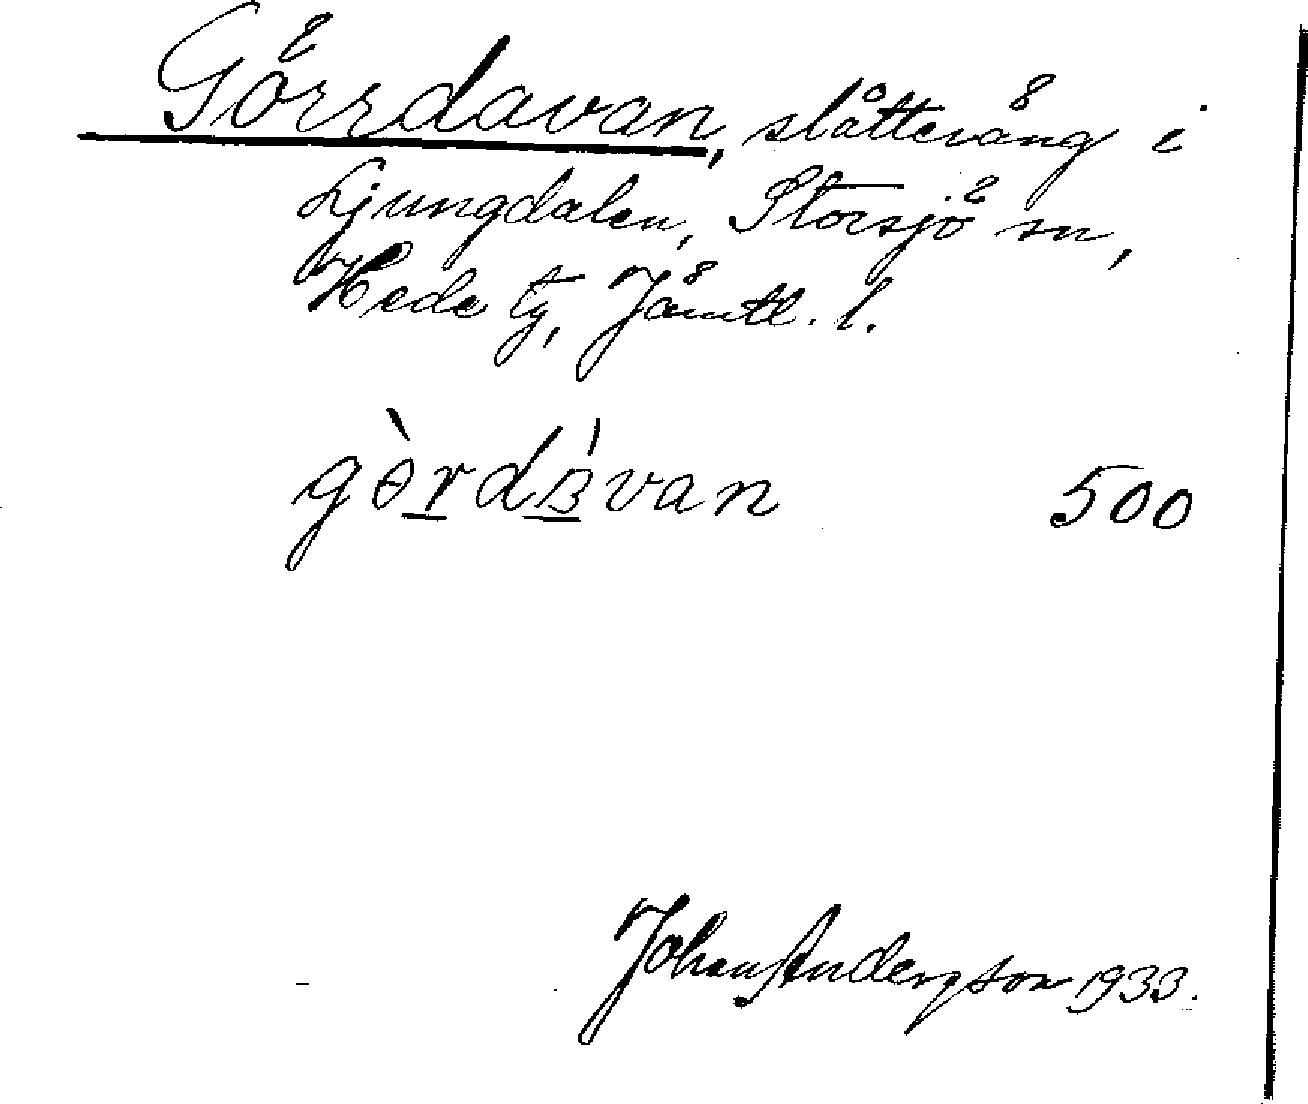 Görrdavan, slåtteväng i
Ljungdalen, Storsjö sn,
Hede tg, Jämtl. l.
500
Johan Andersson 1933.